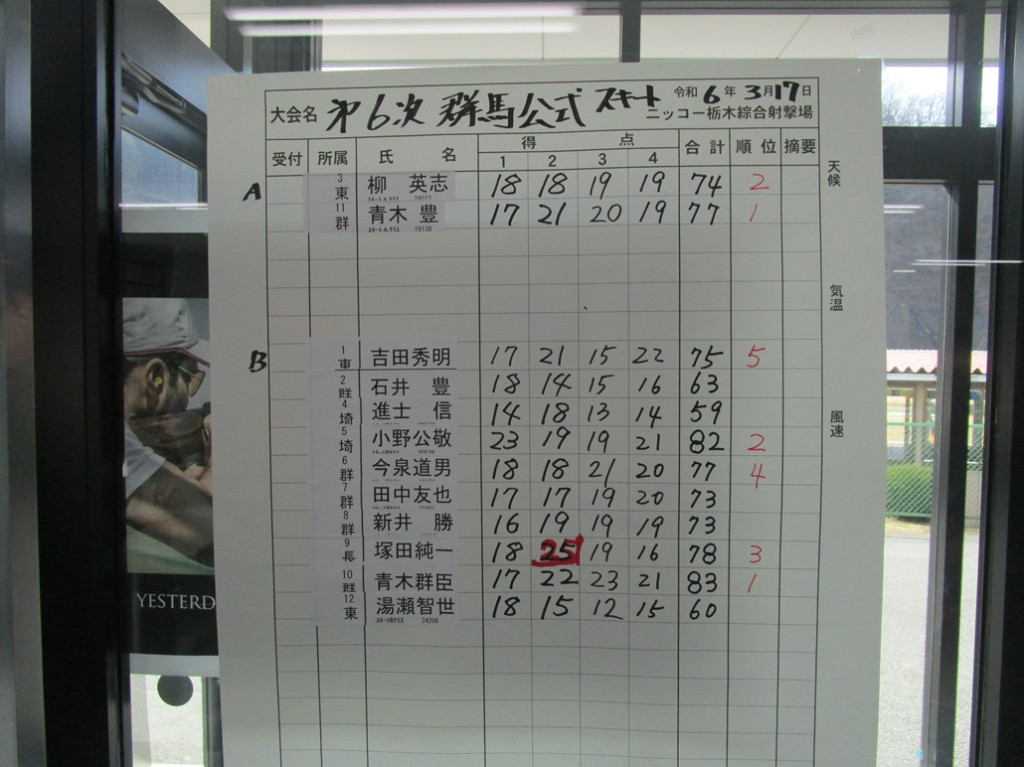 大会名 第6次 群馬公式 スキート 令和6年3月17日
ニッコー栃木綜合射撃場
受付 所属 氏名 得点 合計 順位 摘要
1 2 3 4
天候
A 3 東 柳 英志 18 18 19 19 74 2
11 群 青木 豊 17 21 20 19 77 1
気温
B 1 東 吉田秀明 17 21 15 22 75 5
2 群 石井 豊 18 14 15 16 63
4 埼 進士 信 14 18 13 14 59
風速
5 埼 小野公敬 23 19 19 21 82 2
6 群 今泉道男 18 18 21 20 77 4
7 群 田中友也 17 17 19 20 73
8 群 新井 勝 16 19 19 19 73
9 長 塚田純一 18 25 19 16 78 3
10 群 青木群臣 17 22 23 21 83 1
12 東 湯瀬智世 18 15 12 15 60
YESTERD